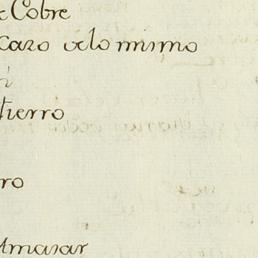 e Cobre
cazo delo mismo
fierro
ro
Amasar